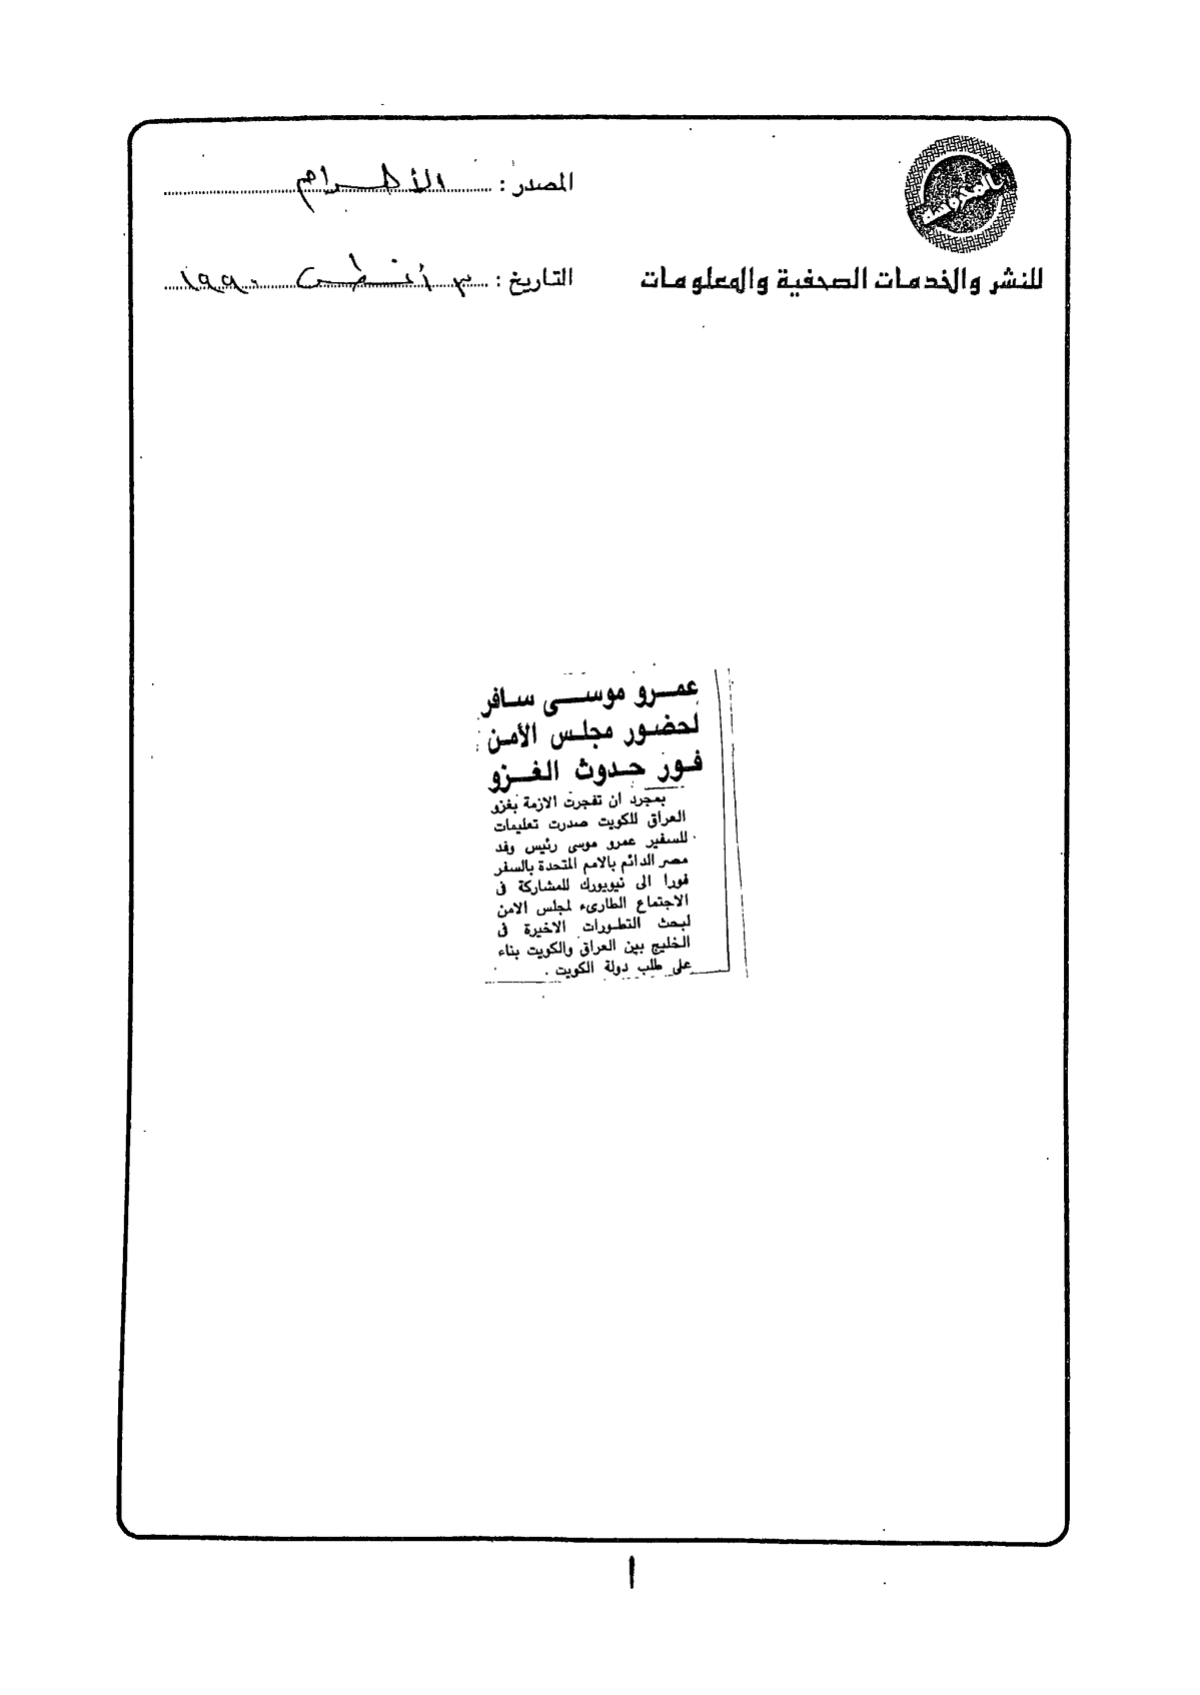 المحروسة
المصدر : الأهرام
للنشر والخدمات الصحفية والمعلومات
التاريخ : ٣ أغسطس ١٩٩٠
عمرو موسى سافر
لحضور مجلس الأمن
فور حدوث الغزو
بمجرد ان تفجرت الازمة بغزو
العراق للكويت صدرت تعليمات
للسفير عمرو موسى رئيس وفد
مصر الدائم بالامم المتحدة بالسفر
فورا الى نيويورك للمشاركة فى
الاجتماع الطارىء لمجلس الامن
لبحث التطورات الاخيرة فى
الخليج بين العراق والكويت بناء
على طلب دولة الكويت .
١